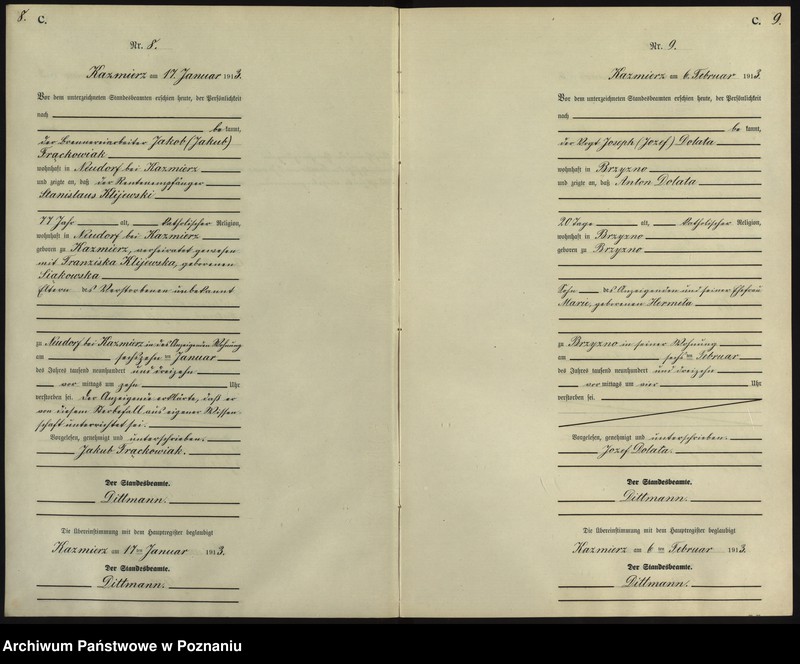 8. C.
Nr. 8.
Kazmierz am 17. Januar 1913.
Vor dem unterzeichneten Standesbeamten erschien heute, der Persönlichkeit
nach
be kannt,
der Brennereiarbeiter Jakob (Jakub)
Frąckowiak
wohnhaft in Neudorf bei Kazmierz
und zeigte an, daß der Rentenempfänger
Stanislaus Klijewski
77 Jahr alt, katholischer Religion,
wohnhaft in Neudorf bei Kazmierz
geboren zu Kazmierz, verheiratet gewesen
mit Franziska Klijewska, geborenen
Siakowska
Eltern des Verstorbenen unbekannt
zu Neudorf bei Kazmierz in des Anzeigenden Wohnung
am sechszehn ten Januar
des Jahres tausend neunhundert und dreizehn
vor mittags um zehn Uhr
verstorben sei. Der Anzeigende erklärte, daß er
von diesem Sterbefall aus eigener Wissen-
schaft unterrichtet sei.
Vorgelesen, genehmigt und unterschrieben.
Jakub Frąckowiak.
Der Standesbeamte.
Dittmann.
Die Übereinstimmung mit dem Hauptregister beglaubigt
Kazmierz am 17 ten Januar 1913.
Der Standesbeamte.
Dittmann.
C. 9.
Nr. 9.
Kazmierz am 6. Februar 1913.
Vor dem unterzeichneten Standesbeamten erschien heute, der Persönlichkeit
nach
be kannt,
der Vogt Joseph (Jozef) Dolata
wohnhaft in Brzyzno
und zeigte an, daß Anton Dolata
20 Tage alt, katholischer Religion,
wohnhaft in Brzyzno
geboren zu Brzyzno
Sohn des Anzeigenden und seiner Ehefrau
Marie, geborenen Hermeta
zu Brzyzno in seiner Wohnung
am sechs ten Februar
des Jahres tausend neunhundert und dreizehn
vor mittags um vier Uhr
verstorben sei.
Vorgelesen, genehmigt und unterschrieben.
Jozef Dolata.
Der Standesbeamte.
Dittmann.
Die Übereinstimmung mit dem Hauptregister beglaubigt
Kazmierz am 6 ten Februar 1913.
Der Standesbeamte.
Dittmann.
Archiwum Państwowe w Poznaniu